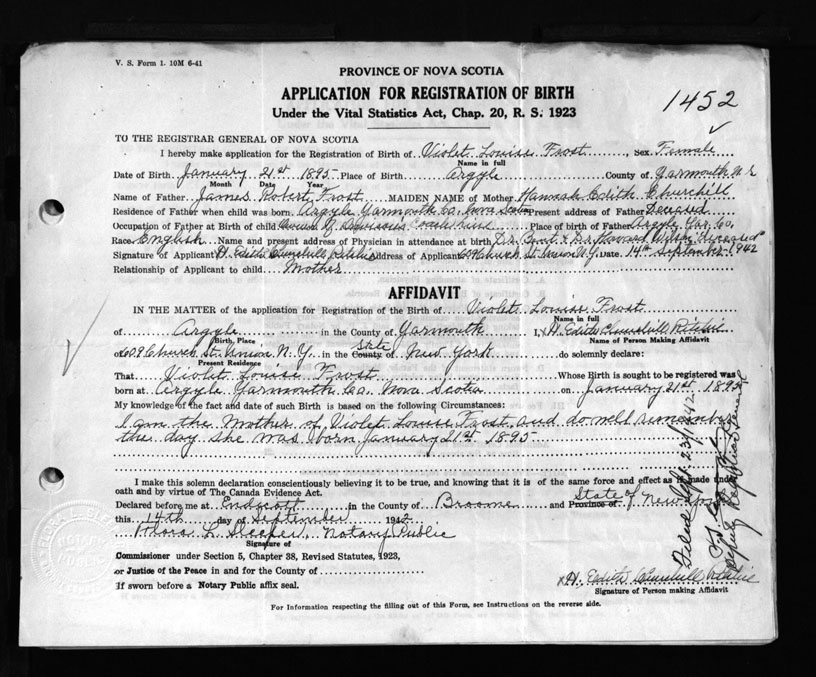 V. S. Form 1. 10M 6-41
PROVINCE OF NOVA SCOTIA
APPLICATION FOR REGISTRATION OF BIRTH
Under the Vital Statistics Act, Chap. 20, R. S. 1923
1452
TO THE REGISTRAR GENERAL OF NOVA SCOTIA
I hereby make application for the Registration of Birth of Violet Louise Frost, Sex Female
Name in full
Date of Birth January 21st 1895 Place of Birth Argyle County of Yarmouth N.S
Month Date Year
Name of Father James Robert Frost MAIDEN NAME of Mother Hannah Edith Churchill
Residence of Father when child was born Argyle Yarmouth Co. Nova Scotia Present address of Father Deceased
Occupation of Father at Birth of child Place of birth of Father Argyle Yar. Co.
Race English Name and present address of Physician in attendance at birth Deceased
Signature of Applicant H. Edith Churchill Ritchie Address of Applicant 609 Church St. Union N.Y. Date 14th September 1942
Relationship of Applicant to child Mother
AFFIDAVIT
IN THE MATTER of the application for Registration of the Birth of Violet Louise Frost
Name in full
of Argyle in the County of Yarmouth I, H. Edith Churchill Ritchie
Birth, Place Name of Person Making Affidavit
of 609 Church St. Union N.Y. in the County of State New York do solemnly declare:
Present Residence
That Violet Louise Frost Whose Birth is sought to be registered was
born at Argyle Yarmouth Co. Nova Scotia on January 21st 1895
My knowledge of the fact and date of such Birth is based on the following Circumstances:
I am the Mother of Violet Louise Frost and do well remember
the day she was born January 21st 1895
I make this solemn declaration conscientiously believing it to be true, and knowing that it is of the same force and effect as if made under
oath and by virtue of The Canada Evidence Act.
Declared before me at Endicott in the County of Broome and Province of State of New York
this 14th day of September 1942
L. Sleeper, Notary Public
Signature of
Commissioner under Section 5, Chapter 38, Revised Statutes, 1923,
or Justice of the Peace in and for the County of
If sworn before a Notary Public affix seal.
x H. Edith Churchill Ritchie
Signature of Person making Affidavit
For Information respecting the filling out of this Form, see Instructions on the reverse side.
Filed Sept 23/1942
Deputy Registrar General